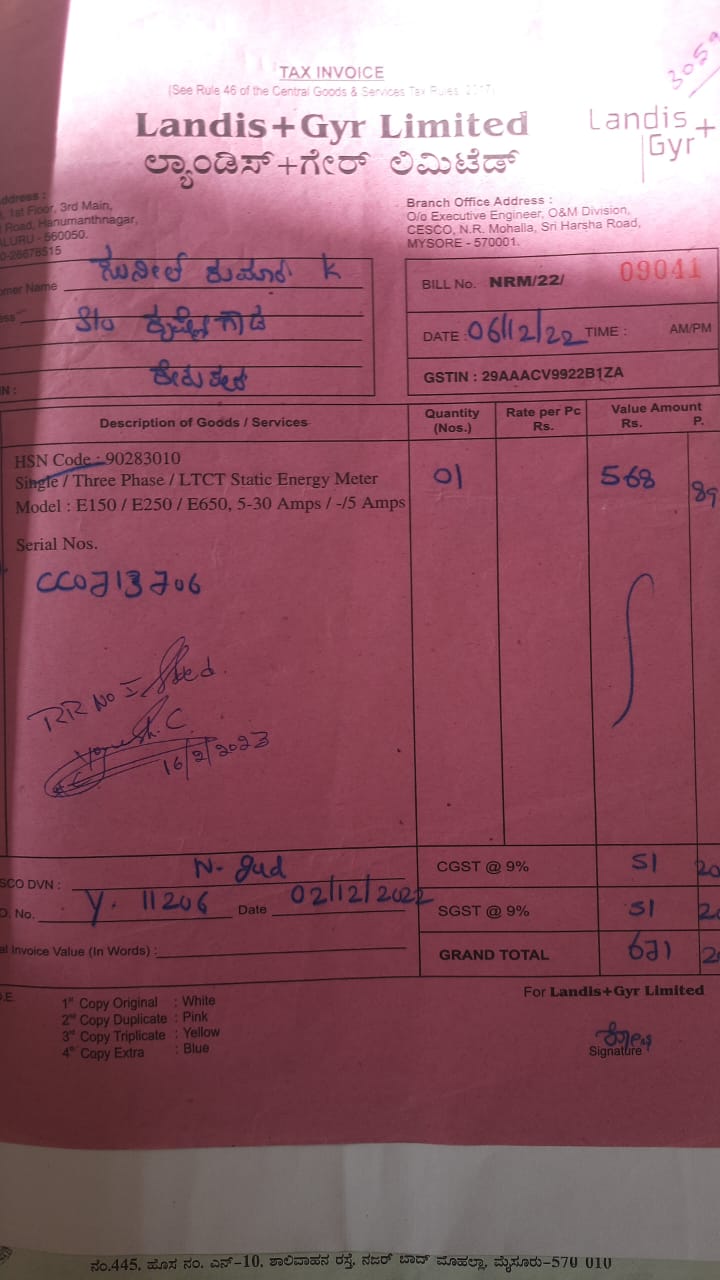 3059
TAX INVOICE
(See Rule 46 of the Central Goods & Services Tax Rules 2017)
Landis+Gyr Limited
ಲ್ಯಾಂಡಿಸ್+ಗೇರ್ ಲಿಮಿಟೆಡ್
Landis+
Gyr
Address :
1st Floor, 3rd Main,
Road, Hanumanthnagar,
LURU - 560050.
0-26678515
Branch Office Address :
O/o Executive Engineer, O&M Division,
CESCO, N.R. Mohalla, Sri Harsha Road,
MYSORE - 570001.
omer Name ಸುನೀಲ್ ಕುಮಾರ K
ess S/o
BILL No. NRM/22/ 09041
DATE : 06/12/22 TIME : AM/PM
GSTIN : 29AAACV9922B1ZA
N :
Description of Goods / Services Quantity (Nos.) Rate per Pc Rs. Value Amount Rs. P.
HSN Code : 90283010
Single / Three Phase / LTCT Static Energy Meter 01 568 89
Model : E150 / E250 / E650, 5-30 Amps / -/5 Amps
Serial Nos.
CC0713706
RR No
16/2/2023
SCO DVN : N-Jud CGST @ 9% 51 20
D. No. Y. 11206 Date 02/12/2022 SGST @ 9% 51 20
al Invoice Value (In Words) : GRAND TOTAL 671 2
For Landis+Gyr Limited
1st Copy Original : White
2nd Copy Duplicate : Pink
3rd Copy Triplicate : Yellow
4th Copy Extra : Blue
Signature
ನಂ.445, ಹೊಸ ನಂ. ಎನ್-10, ಶಾಲಿವಾಹನ ರಸ್ತೆ, ನಜರ್ ಬಾದ್ ಮೊಹಲ್ಲಾ, ಮೈಸೂರು-570 010